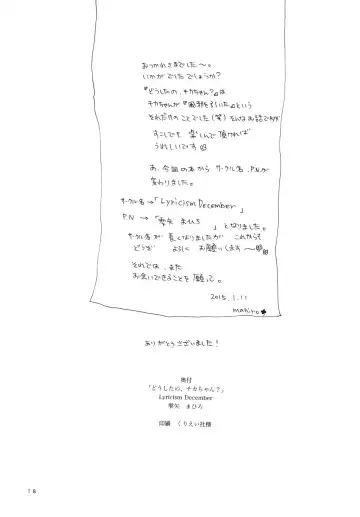 おつかれさまでした〜。
いかがでしたでしょうか?
『どうしたの、チカちゃん?』は
チカちゃんが『風邪を引いた』という
それだけのことでした(笑)そんなお話ですが
すこしでも 楽しんで頂ければ
うれしいです
あ、今回の本から サークル名、P.Nが
変わりました。
サークル名→「Lyricism December」
P.N → 「雫矢 まひろ 」となりました。
サークル名が長くなりましたが これからも
どうぞ よろしくお願いします〜
それでは、また
お会いできることを願って。
2015.1.11
mahiro
ありがとうございました!
奥付
「どうしたの、チカちゃん?」
Lyricism December
雫矢 まひろ
印刷 くりえい社様
18